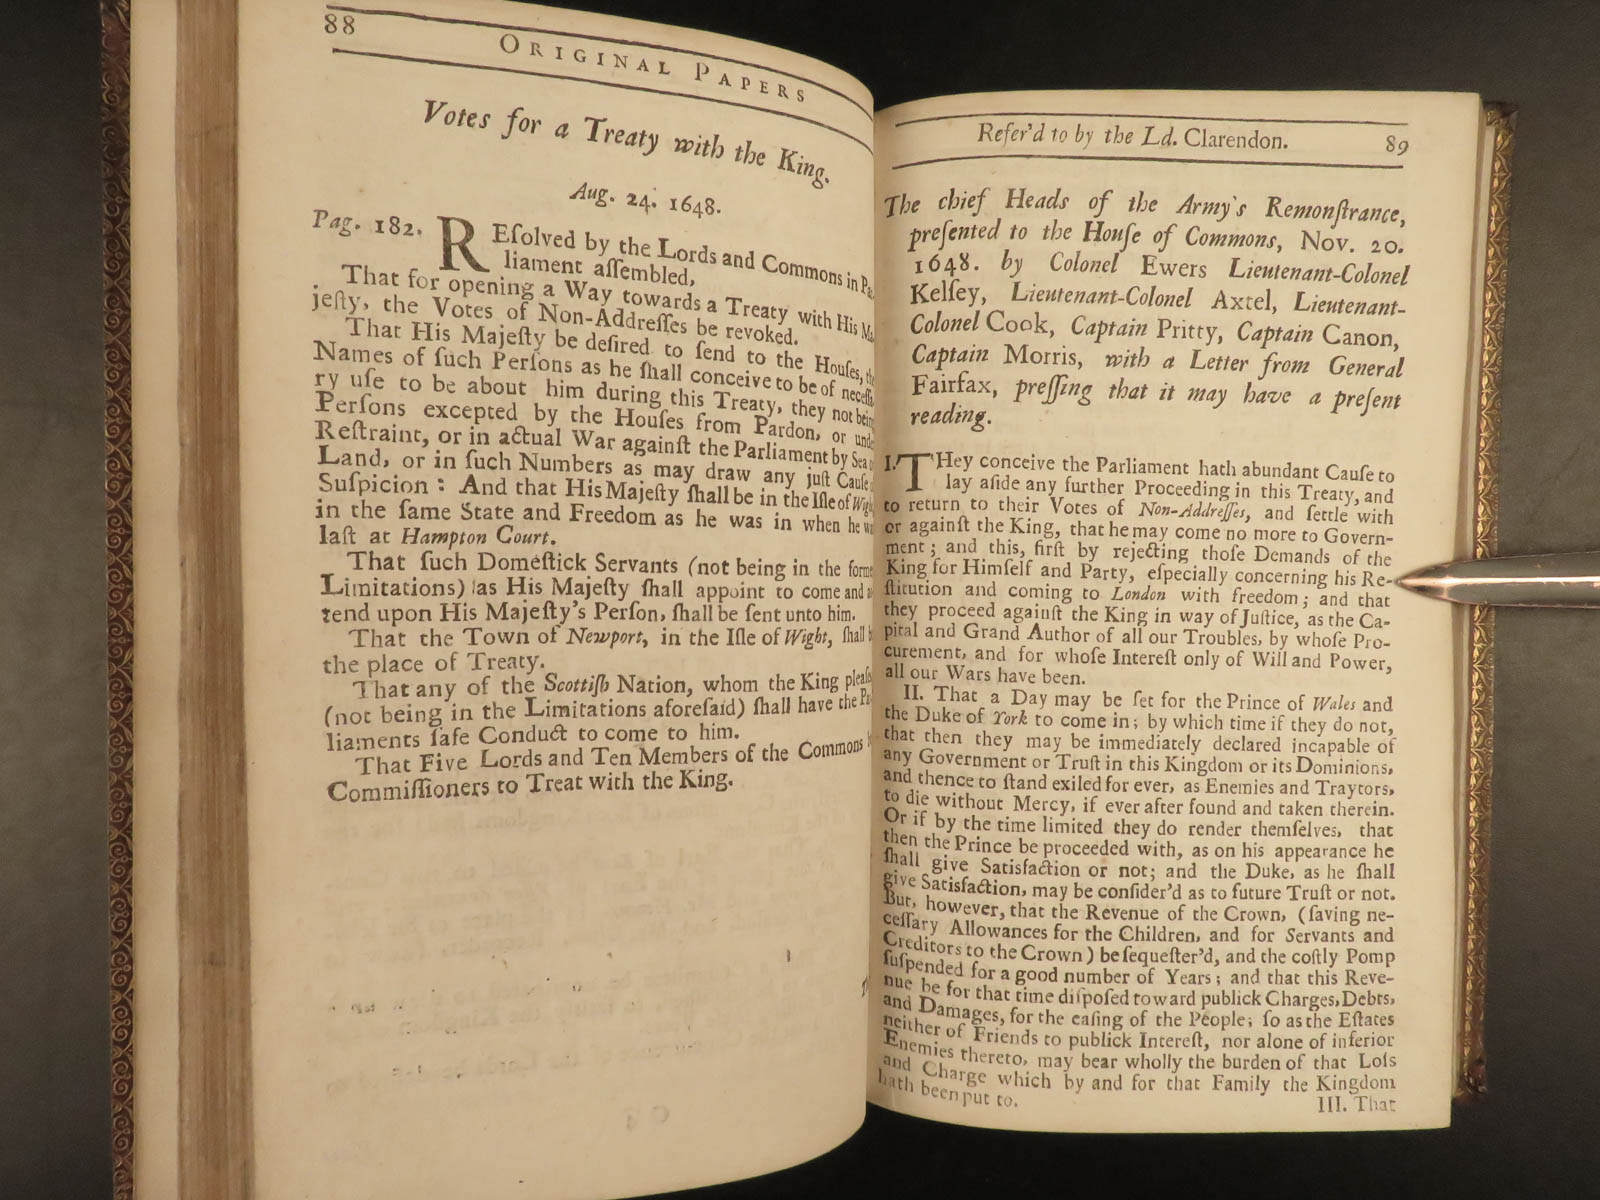 88
ORIGINAL PAPERS
Votes for a Treaty with the King.
Aug. 24. 1648.
Pag. 182. REſolved by the Lords and Commons in Pa
liament aſſembled,
That for opening a Way towards a Treaty with His Ma
jeſty, the Votes of Non-Addreſſes be revoked.
That His Majeſty be deſired to ſend to the Houſes, the
Names of ſuch Perſons as he ſhall conceive to be of neceſſa
ry uſe to be about him during this Treaty, they not being
Perſons excepted by the Houſes from Pardon, or unde
Reſtraint, or in actual War againſt the Parliament by Sea o
Land, or in ſuch Numbers as may draw any juſt Cauſe
Suſpicion: And that His Majeſty ſhall be in the Iſle of Wigh
in the ſame State and Freedom as he was in when he wa
laſt at Hampton Court.
That ſuch Domeſtick Servants (not being in the forme
Limitations) as His Majeſty ſhall appoint to come and a
tend upon His Majeſty's Perſon, ſhall be ſent unto him.
That the Town of Newport, in the Iſle of Wight, ſhall b
the place of Treaty.
That any of the Scottiſh Nation, whom the King pleaſe
(not being in the Limitations aforeſaid) ſhall have the Pa
liaments ſafe Conduct to come to him.
That Five Lords and Ten Members of the Commons b
Commiſſioners to Treat with the King.
Refer'd to by the Ld. Clarendon. 89
The chief Heads of the Army's Remonſtrance,
preſented to the Houſe of Commons, Nov. 20.
1648. by Colonel Ewers Lieutenant-Colonel
Kelſey, Lieutenant-Colonel Axtel, Lieutenant-
Colonel Cook, Captain Pritty, Captain Canon,
Captain Morris, with a Letter from General
Fairfax, preſſing that it may have a preſent
reading.
I. THey conceive the Parliament hath abundant Cauſe to
lay aſide any further Proceeding in this Treaty, and
to return to their Votes of Non-Addreſſes, and ſettle with
or againſt the King, that he may come no more to Govern-
ment; and this, firſt by rejecting thoſe Demands of the
King for Himſelf and Party, eſpecially concerning his Re-
ſtitution and coming to London with freedom; and that
they proceed againſt the King in way of Juſtice, as the Ca-
pital and Grand Author of all our Troubles, by whoſe Pro-
curement, and for whoſe Intereſt only of Will and Power,
all our Wars have been.
II. That a Day may be ſet for the Prince of Wales and
the Duke of York to come in; by which time if they do not,
that then they may be immediately declared incapable of
any Government or Truſt in this Kingdom or its Dominions,
and thence to ſtand exiled for ever, as Enemies and Traytors,
to die without Mercy, if ever after found and taken therein.
Or if by the time limited they do render themſelves, that
then the Prince be proceeded with, as on his appearance he
ſhall give Satisfaction or not; and the Duke, as he ſhall
give Satisfaction, may be conſider'd as to future Truſt or not.
But, however, that the Revenue of the Crown, (ſaving ne-
ceſſary Allowances for the Children, and for Servants and
Creditors to the Crown) be ſequeſter'd, and the coſtly Pomp
ſuſpended for a good number of Years; and that this Reve-
nue be for that time diſpoſed toward publick Charges, Debts,
and Damages, for the eaſing of the People; ſo as the Eſtates
neither of Friends to publick Intereſt, nor alone of inferior
Enemies thereto, may bear wholly the burden of that Loſs
and Charge which by and for that Family the Kingdom
hath been put to.
III. That